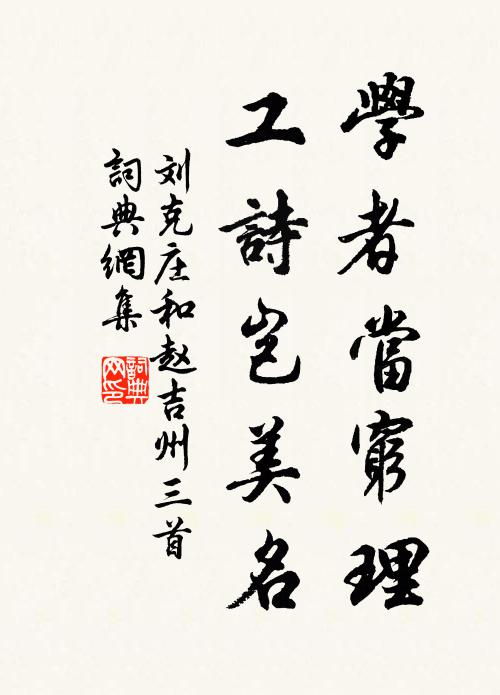 學者當窮理
工詩豈美名
刘克庄和赵吉州三首
詞典網集
詞典网印